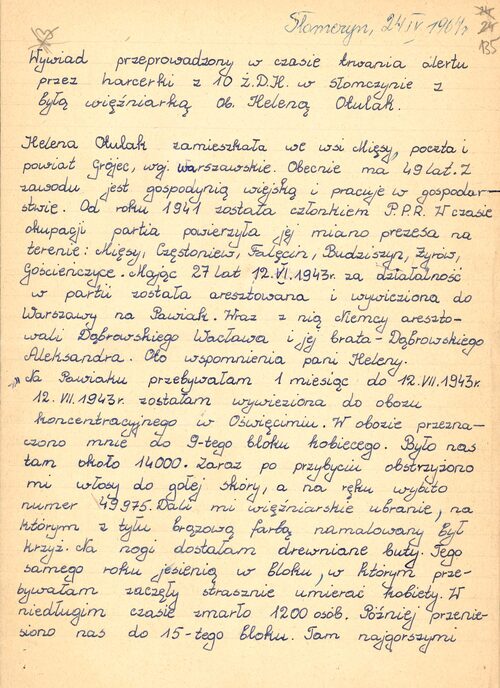 Słomczyn, 24 IV 1964r
24
24
135
Wywiad przeprowadzony w czasie trwania alertu
przez harcerki z 10 Ż.D.H. w Słomczynie z
byłą więźniarką ob. Heleną Okulak.
Helena Okulak zamieszkała we wsi Mięsy, poczta i
powiat Grójec, woj. warszawskie. Obecnie ma 49 lat. Z
zawodu jest gospodynią wiejską i pracuje w gospodar-
stwie. Od roku 1941 została członkiem P.P.R. W czasie
okupacji partia powierzyła jej miano prezesa na
terenie: Mięsy, Częstoniew, Falęcin, Budziszyn, Żyrów,
Gościeńczyce. Mając 27 lat 12.VI.1943r. za działalność
w partii została aresztowana i wywieziona do
Warszawy na Pawiak. Wraz z nią Niemcy areszto-
wali Dąbrowskiego Wacława i jej brata-Dąbrowskiego
Aleksandra. Oto wspomnienia pani Heleny.
„Na Pawiaku przebywałam 1 miesiąc do 12.VII.1943r.
12.VII.1943r. zostałam wywieziona do obozu
koncentracyjnego w Oświęcimiu. W obozie przezna-
czono mnie do 9-tego bloku kobiecego. Było nas
tam około 14000. Zaraz po przybyciu obstrzyżono
mi włosy do gołej skóry, a na ręku wybito
numer 49975. Dali mi więźniarskie ubranie, na
którym z tyłu brązową farbą namalowany był
krzyż. Na nogi dostałam drewniane buty. Tego
samego roku jesienią w bloku, w którym prze-
bywałam zaczęły strasznie umierać kobiety. W
niedługim czasie zmarło 1200 osób. Później przenie-
siono nas do 15-tego bloku. Tam najgorszymi